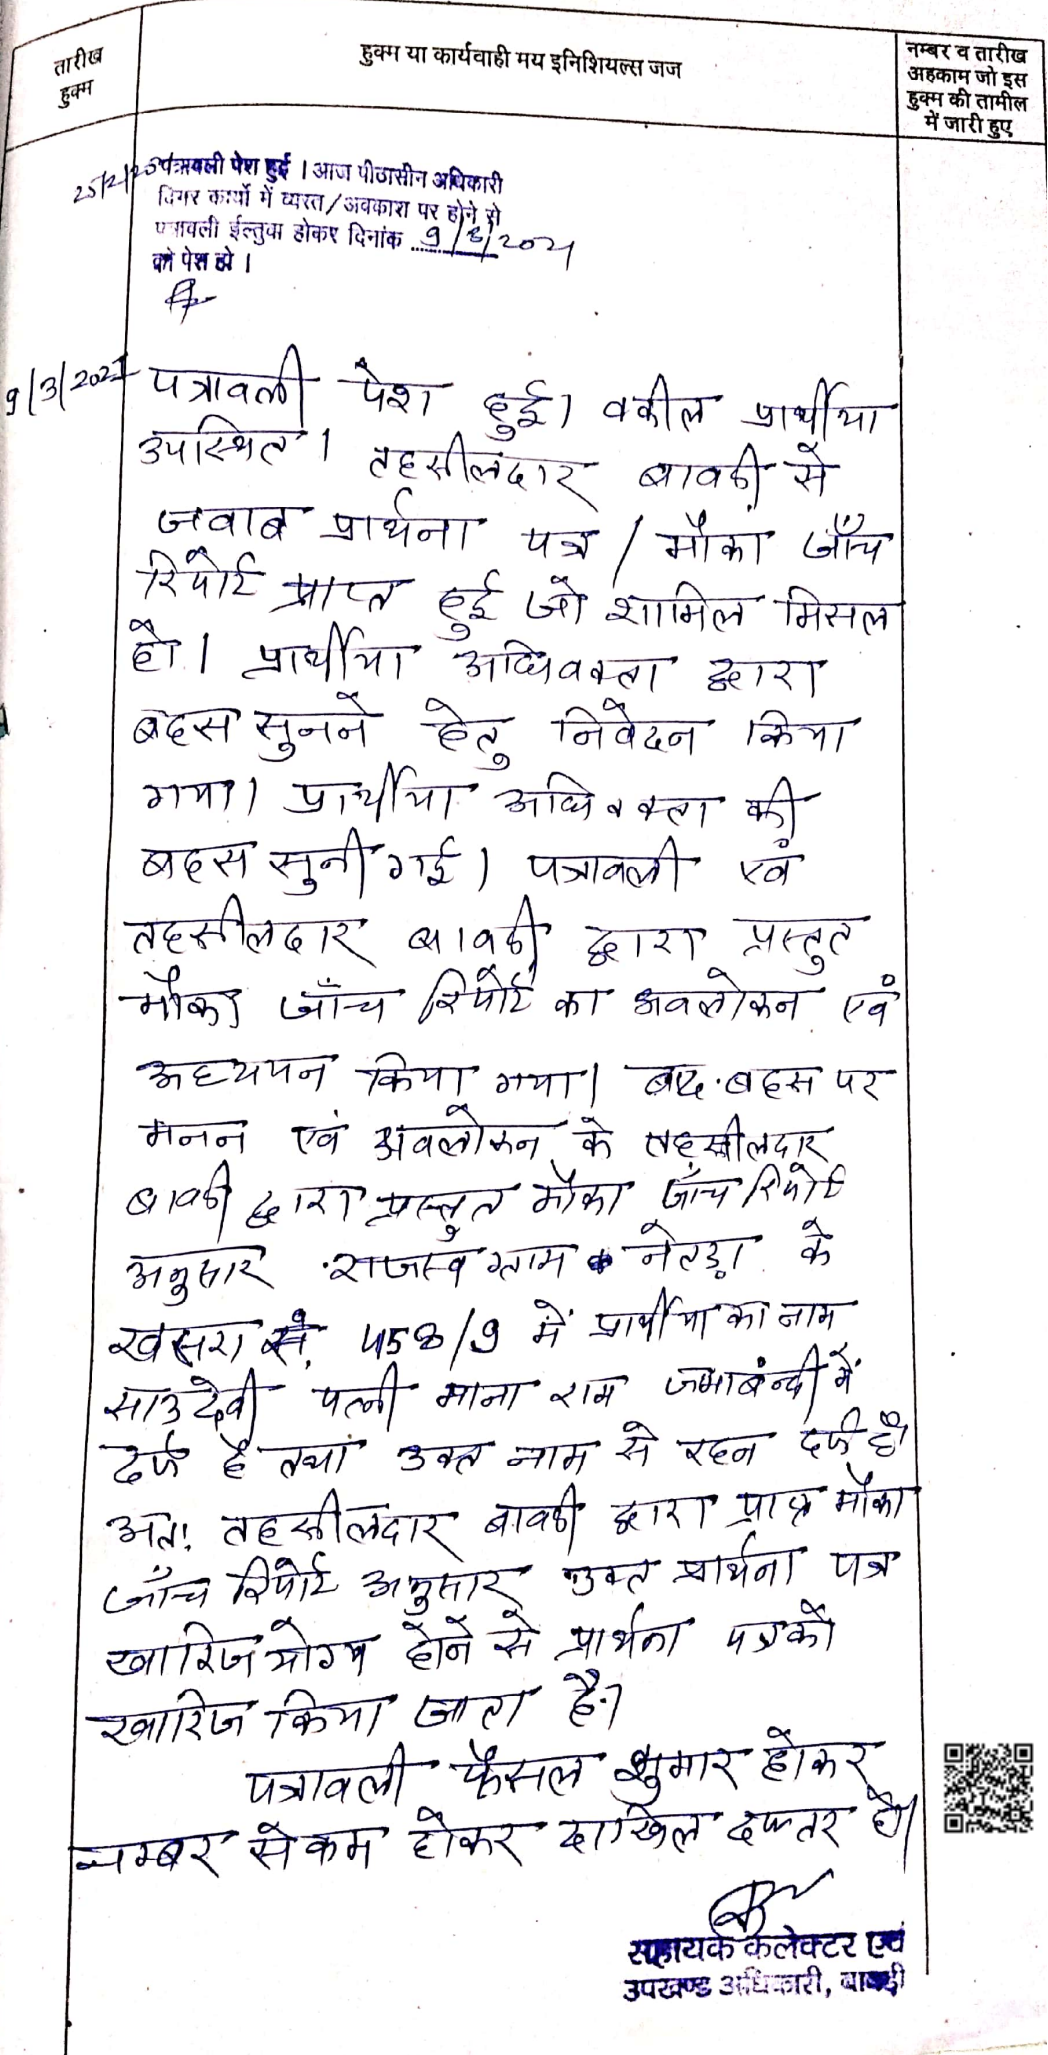 तारीख
हुक्म
हुक्म या कार्यवाही मय इनिशियल्स जज
नम्बर व तारीख
अहकाम जो इस
हुक्म की तामील
में जारी हुए
25/2/25 पत्रावली पेश हुई । आज पीठासीन अधिकारी
दिगर कार्यो में व्यस्त/अवकाश पर होने से
पत्रावली ईल्तुवा होकर दिनांक 9/3/2021
को पेश हो ।
9/3/2021 पत्रावली पेश हुई। वकील प्रार्थीया
उपस्थित। तहसीलदार बावडी से
जवाब प्रार्थना पत्र / मौका जाँच
रिपोर्ट प्राप्त हुई जो शामिल मिसल
है। प्रार्थीया अधिवक्ता द्वारा
बहस सुनने हेतु निवेदन किया
गया। प्रार्थीया अधिवक्ता की
बहस सुनी गई। पत्रावली एवं
तहसीलदार बावडी द्वारा प्रस्तुत
मौका जाँच रिपोर्ट का अवलोकन एवं
अध्ययन किया गया। बाद बहस पर
मनन एवं अवलोकन के तहसीलदार
बावडी द्वारा प्रस्तुत मौका जाँच रिपोर्ट
अनुसार राजस्व ग्राम नेतड़ा के
खसरा सं. 458/9 में प्रार्थीया का नाम
साउदेवी पत्नी माना राम जमाबंन्दी में
दर्ज है तथा उक्त नाम से रहन दर्ज है।
अतः तहसीलदार बावडी द्वारा प्राप्त मौका
जाँच रिपोर्ट अनुसार उक्त प्रार्थना पत्र
खारिज योग्य होने से प्रार्थना पत्र को
खारिज किया जाता है।
पत्रावली फैसल शुमार होकर
नम्बर से कम होकर दाखिल दफ्तर हो।
सहायक कलेक्टर एवं
उपखण्ड अधिकारी, बावड़ी